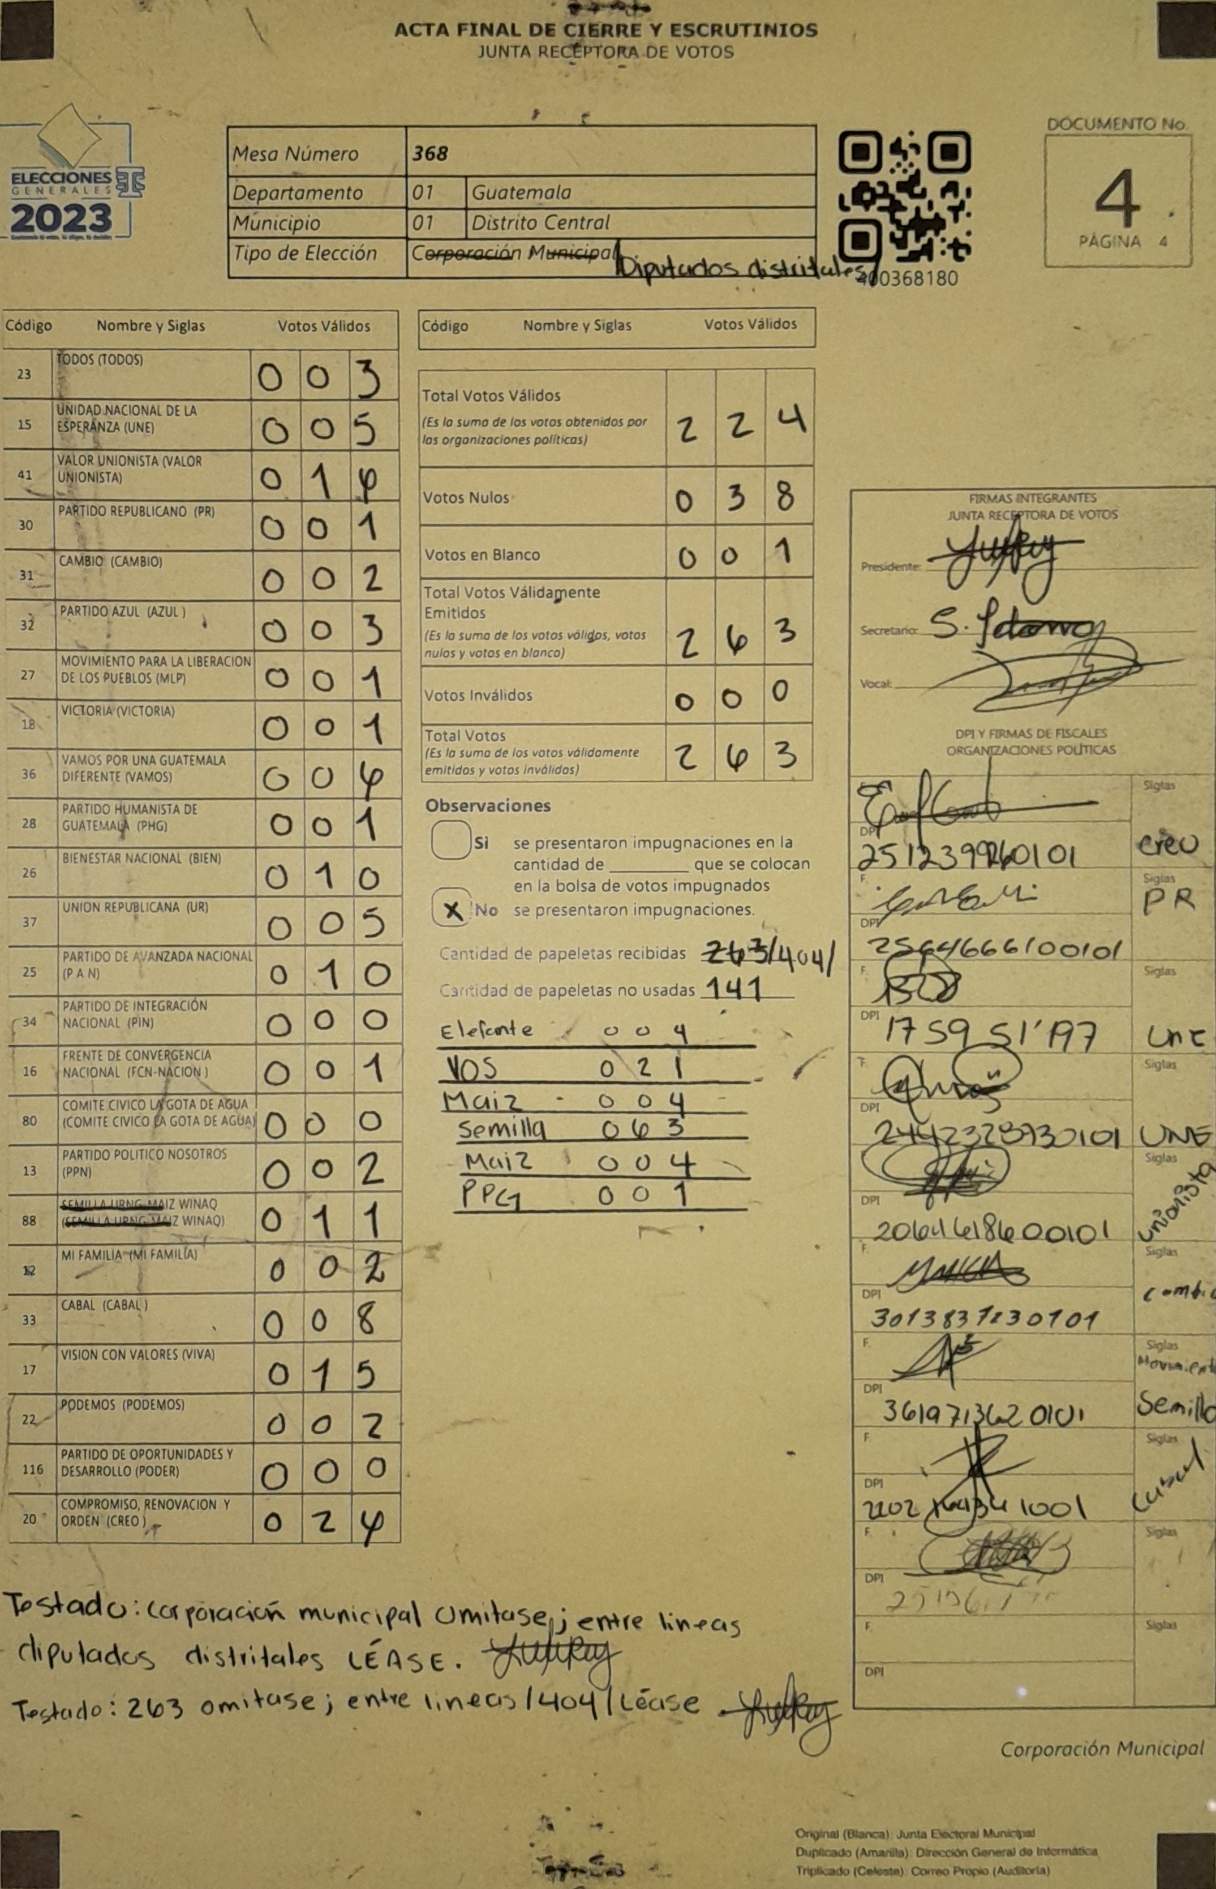 ACTA FINAL DE CIERRE Y ESCRUTINIOS
JUNTA RECEPTORA DE VOTOS
ELECCIONES
GENERALES
2023
Mesa Número 368
Departamento 01 Guatemala
Municipio 01 Distrito Central
Tipo de Elección Corporación Municipal Diputados distritales/
400368180
DOCUMENTO No.
4
PÁGINA 4
Código Nombre y Siglas Votos Válidos
23 TODOS (TODOS) 0 0 3
15 UNIDAD NACIONAL DE LA ESPERANZA (UNE) 0 0 5
41 VALOR UNIONISTA (VALOR UNIONISTA) 0 1 4
30 PARTIDO REPUBLICANO (PR) 0 0 1
31 CAMBIO (CAMBIO) 0 0 2
32 PARTIDO AZUL (AZUL ) 0 0 3
27 MOVIMIENTO PARA LA LIBERACION DE LOS PUEBLOS (MLP) 0 0 1
18 VICTORIA (VICTORIA) 0 0 1
36 VAMOS POR UNA GUATEMALA DIFERENTE (VAMOS) 0 0 4
28 PARTIDO HUMANISTA DE GUATEMALA (PHG) 0 0 1
26 BIENESTAR NACIONAL (BIEN) 0 1 0
37 UNION REPUBLICANA (UR) 0 0 5
25 PARTIDO DE AVANZADA NACIONAL (P A N) 0 1 0
34 PARTIDO DE INTEGRACIÓN NACIONAL (PIN) 0 0 0
16 FRENTE DE CONVERGENCIA NACIONAL (FCN-NACION ) 0 0 1
80 COMITE CIVICO LA GOTA DE AGUA (COMITE CIVICO LA GOTA DE AGUA) 0 0 0
13 PARTIDO POLITICO NOSOTROS (PPN) 0 0 2
88 SEMILLA URNG MAIZ WINAQ (SEMILLA URNG MAIZ WINAQ) 0 1 1
12 MI FAMILIA (MI FAMILIA) 0 0 2
33 CABAL (CABAL ) 0 0 8
17 VISION CON VALORES (VIVA) 0 1 5
22 PODEMOS (PODEMOS) 0 0 2
116 PARTIDO DE OPORTUNIDADES Y DESARROLLO (PODER) 0 0 0
20 COMPROMISO, RENOVACION Y ORDEN (CREO ) 0 2 4
Código Nombre y Siglas Votos Válidos
Total Votos Válidos
(Es la suma de los votos obtenidos por
las organizaciones políticas) 2 2 4
Votos Nulos 0 3 8
Votos en Blanco 0 0 1
Total Votos Válidamente
Emitidos
(Es la suma de los votos válidos, votos
nulos y votos en blanco) 2 6 3
Votos Inválidos 0 0 0
Total Votos
(Es la suma de los votos válidamente
emitidos y votos inválidos) 2 6 3
Observaciones
Si se presentaron impugnaciones en la
cantidad de ________ que se colocan
en la bolsa de votos impugnados
X No se presentaron impugnaciones.
Cantidad de papeletas recibidas 263/404/
Cantidad de papeletas no usadas 141
Elefante 0 0 4
VOS 0 2 1
Maiz - 0 0 4
Semilla 0 6 3
Maiz 0 0 4
PPG 0 0 1
FIRMAS INTEGRANTES
JUNTA RECEPTORA DE VOTOS
Presidente:
Secretario:
Vocal:
DPI Y FIRMAS DE FISCALES
ORGANIZACIONES POLÍTICAS
Siglas
DPI creo
F. Siglas
DPI PR
F. Siglas
DPI UNE
F. Siglas
DPI UNE
Siglas
DPI Unionista
F. Siglas
DPI Cambio
F. Siglas
DPI Movimiento
Semilla
F. Siglas
DPI Cabal
F. Siglas
DPI
F. Siglas
DPI
Testado: corporación municipal omitase; entre lineas
diputados distritales LÉASE.
Testado: 263 omitase; entre lineas /404/ Léase
Corporación Municipal
Original (Blanca): Junta Electoral Municipal
Duplicado (Amarilla): Dirección General de Informática
Triplicado (Celeste): Correo Propio (Auditoría)